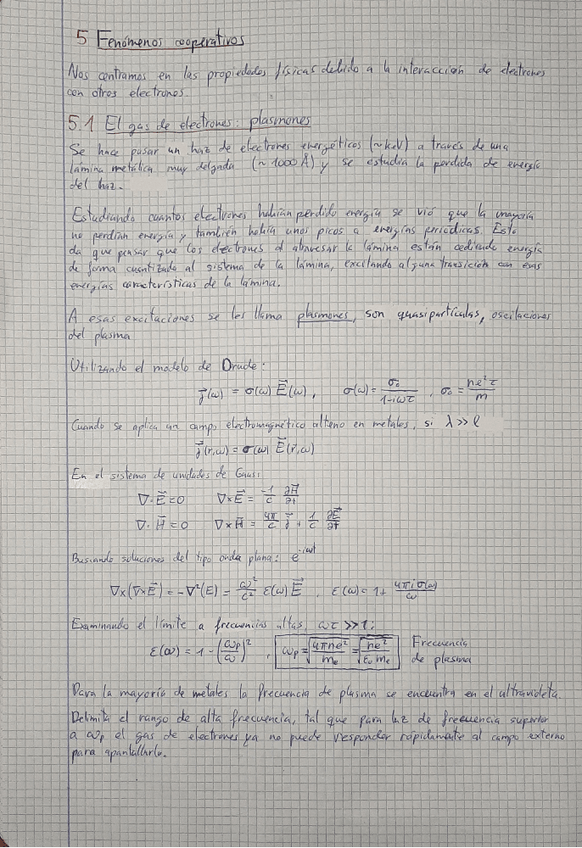 5 Fenómenos cooperativos
Nos centramos en las propiedades físicas debido a la interacción de electrones
con otros electrones
5.1 El gas de electrones: plasmones
Se hace pasar un haz de electrones energéticos (~keV) a través de una
lámina metálica muy delgada (~1000 Å) y se estudia la perdida de energía
del haz.
Estudiando cuantos electrones habían perdido energía se vió que la mayoría
no perdían energía y también había unos picos a energías periodicas. Esto
da que pensar que los electrones al atravesar la lámina están cediendo energía
de forma cuantizada al sistema de la lámina, excitando alguna transición con esas
energías características de la lámina.
A esas excitaciones se les llama plasmones, son quasipartículas, oscilaciones
del plasma
Utilizando el modelo de Drude:
j⃗(ω) = σ(ω) E⃗(ω), σ(ω) = σ₀/(1-iωτ), σ₀ = ne²τ/m
Cuando se aplica un campo electromagnético alterno en metales, si λ >> ℓ
j⃗(r,ω) = σ(ω) E⃗(r,ω)
En el sistema de unidades de Gauss:
∇·E⃗ = 0 ∇×E⃗ = -1/c ∂H⃗/∂t
∇·H⃗ = 0 ∇×H⃗ = 4π/c j⃗ + 1/c ∂E⃗/∂t
Buscando soluciones del tipo onda plana: e^(-iωt)
∇×(∇×E⃗) = -∇²(E) = ω²/c² ε(ω) E⃗, ε(ω) = 1 + 4πiσ(ω)/ω
Examinando el límite a frecuencias altas, ωτ >> 1:
ε(ω) = 1 - (ωp/ω)², ωp = √(4πne²/me) = √(ne²/ε₀me) Frecuencia
de plasma
Para la mayoría de metales la frecuencia de plasma se encuentra en el ultravioleta.
Delimita el rango de alta frecuencia, tal que para luz de frecuencia superior
a ωp el gas de electrones ya no puede responder rápidamente al campo externo
para apantallarlo.